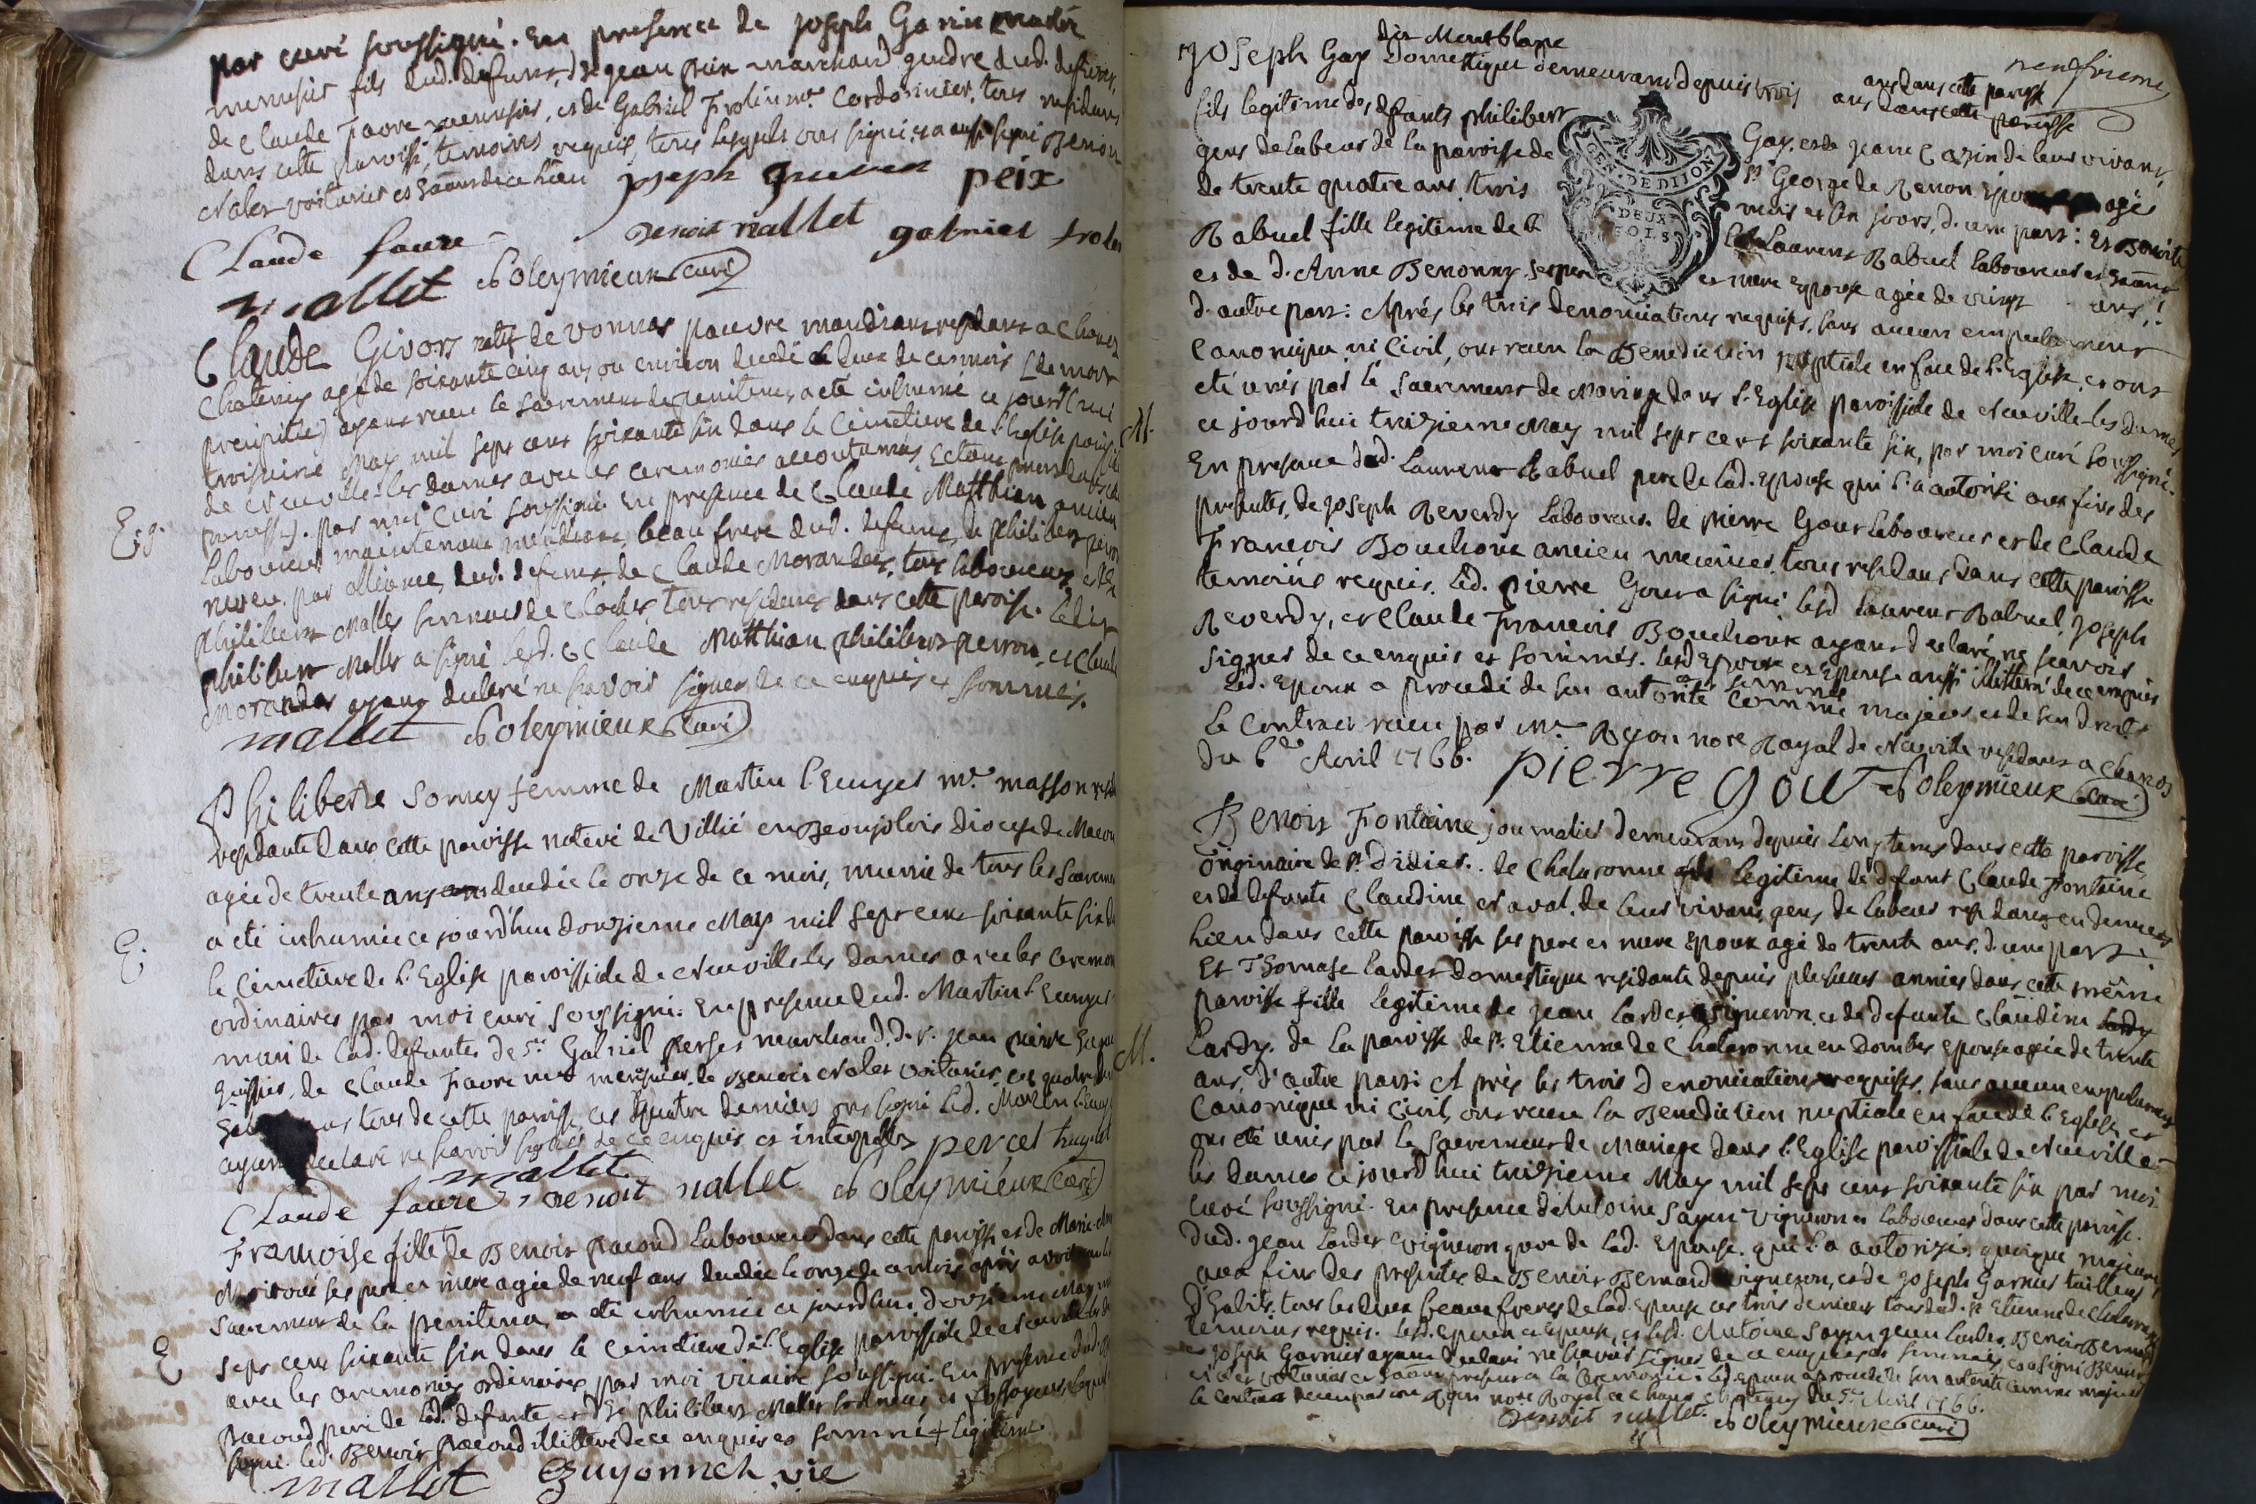 par curé soussigné. En presence de joseph
menusier fils dud. defunt, de jean peix marchand gendre dud. defunt,
de Claude Favre menusier, et de Gabriel Frolin me. Cordonnier, tous residans
dans cette paroisse, temoins requis tous lesquels ont signé, et a aussi signé Benoit
Nalet voiturier et de ce lieu joseph peix
Claude faure Benoit nallet gabriel frolin
mallet Poleymieux curé
Claude Givors natif de vonnas pauvre mandiant residant a Chanoz
Chateney agé de soixante cinq ans ou environ decedé le deux de ce mois (de mort
precipitée) ayant reçu le sacrement de penitence, a été inhumé ce jourd'hui
troisieme May mil sept cent soixante six dans le Cimetiere de l'Eglise parois
de Neuville-les dames avec les ceremonies accoutumées,
paroisse). par moi Curé soussigné En presence de Claude Matthian ancien
Laboureur maintenant mendiant, beau frere dud. defunt, de philibert perron
neveu par alliance dud. defunt, de Claude Morandas, tous laboureurs, et de
philibert Mallet sonneur de cloches, tous residents dans cette paroisse. Ledit
philibert Mallet a signé lesd. Claude Matthian philibert perron, et Claude
Morandas ayant declaré ne savoir signer de ce enquis et sommés.
mallet Poleymieux curé
Philiberte Sornay femme de Martin l'Enuyer me. masson
residante dans cette paroisse native de Villié en Beaujolois Diocese de Macon
agée de trente ans decedée le onze de ce mois, munie de tous les sacremens
a été inhumée ce jourd'hui douzieme May mil sept cent soixante six dans
le Cimetiere de l'Eglise paroissiale de Neuville les Dames avec les ceremonies
ordinaires par moi curé soussigné. En presence dud. Martin l'Enuyer
mari de lad. defunte, de sr. Gabriel perset marchand, de sr. jean pierre
huissier, de Claude Favre me menusier, de Benoit Nalet voiturier,
tous de cette paroisse, ces quatre derniers ont signé led. Martin
ayant declaré ne savoir signer de ce enquis et interpellé percet
mallet
Claude faure Benoit nallet Poleymieux curé
Françoise fille de Benoit pacoud Laboureur dans cette paroisse et de Marie
ses pere et mere agée de neuf ans decedée le onze de ce mois après avoir reçu le
sacrement de la penitence, a été inhumée ce jourd'hui douzieme May mil
sept cent soixante six dans le Cimetiere de l'Eglise paroissiale de Neuville les
avec les ceremonies ordinaires par moi vicaire soussigné. En presence dud.
pacoud pere de lad. defunte et de philibert Mallet sonneur et fossoyeur, lequel
signé. led. Benoit pacoud illitteré de ce enquis et sommé + legitime
mallet Guyonnet vic
E.
E
dit Montblanc
neufvieme
Joseph Gay Domestique demeurant depuis trois ans dans cette paroisse
ans dans cette paroisse
fils legitime des defunts philibert Gay, et de jeane Cazin de leur vivant,
gens de labeur de la paroisse de st George de Renon Epoux agé
de trente quatre ans, trois mois et six jours, d'une part: Et Benoite
Rabuel fille legitime de Laurent Rabuel laboureur et
et de d. Anne Benonny, ses pere et mere Epouse agée de vingt ans,
d'autre part: Après les trois denonciations requises, sans aucun empechement
Canonique ni Civil, ont reçu la Benediction nuptiale en face de l'Eglise, et ont
été unis par le sacrement de Mariage dans l'Eglise paroissiale de Neuville-les Dames
ce jourd'hui treizieme May mil sept cent soixante six, par moi curé soussigné.
En presence dud. Laurent Rabuel pere de lad. Epouse qui l'a autorisé aux fins des
presentes, de joseph Reverdy Laboureur. de pierre Gour laboureur et de Claude
François Bouchoux ancien meunier, tous residans dans cette paroisse
temoins requis. Led. pierre Gour a signé lesd. Laurent Rabuel, joseph
Reverdy, et Claude François Bouchoux ayant declaré ne scavoir
signer de ce enquis et sommés. Lesd. Epoux et Epouse aussi illitteré de ce enquis
et sommés
Led. Epoux a procedé de son autorité comme majeur et de son droit
le contract reçu par me. Ryon nore Royal de Neuville residant a Chanoz
du 6e Avril 1766. pierre gour Poleymieux curé
M.
GEN. DE DIJON
DEUX
SOLS
Benoit Fontaine journalier demeurant depuis longtems dans cette paroisse,
originaire de st. Didier. de Chalaronne fils legitime de defunt Claude Fontaine
et de defunte Claudine Naval, de leur vivant gens de labeur residans en dernier
lieu dans cette paroisse ses pere et mere Epoux agé de trente ans, d'une part
Et Thomase Lardet domestique residante depuis plusieurs années dans cette même
paroisse fille legitime de jean Lardet vigneron, et de defunte Claudine Lardy
Lardy. de la paroisse de st. Etienne de Chalaronne en Dombes Epouse agée de trente
ans, d'autre part: Après les trois Denonciations requises, sans aucun empechement
Canonique ni Civil, ont reçu la Benediction nuptiale en face de l'Eglise, et
ont été unis par le sacrement de Mariage dans l'Eglise paroissiale de Neuville-
les dames ce jourd'hui treizieme May mil sept cent soixante six par moi
curé soussigné. En presence d'Antoine Sayen vigneron et laboureur dans cette paroisse.
dud. jean Lardet vigneron pere de lad. Epouse. qui l'a autorizé, quoique majeure,
aux fins des presentes de Benoit Bernard vigneron, et de joseph Garnier tailleur
d'habits, tous les deux beaux freres de lad. Epouse ces trois derniers tous dud. st Etienne de Chalaronne
temoins requis. Lesd. Epoux et Epouse, et lesd. Antoine Sayen jean Lardet, Benoit Bernard
et joseph Garnier ayant declaré ne scavoir signer de ce enquis et sommés, et a signé Benoit
Nalet voiturier present a la Ceremonie. Led. Epoux a procedé de son autorité comme majeur
le contract reçu par me Ryon nore Royal a Chanoz Chateney du 5e Avril 1766.
Benoit nallet. Poleymieux curé
M.